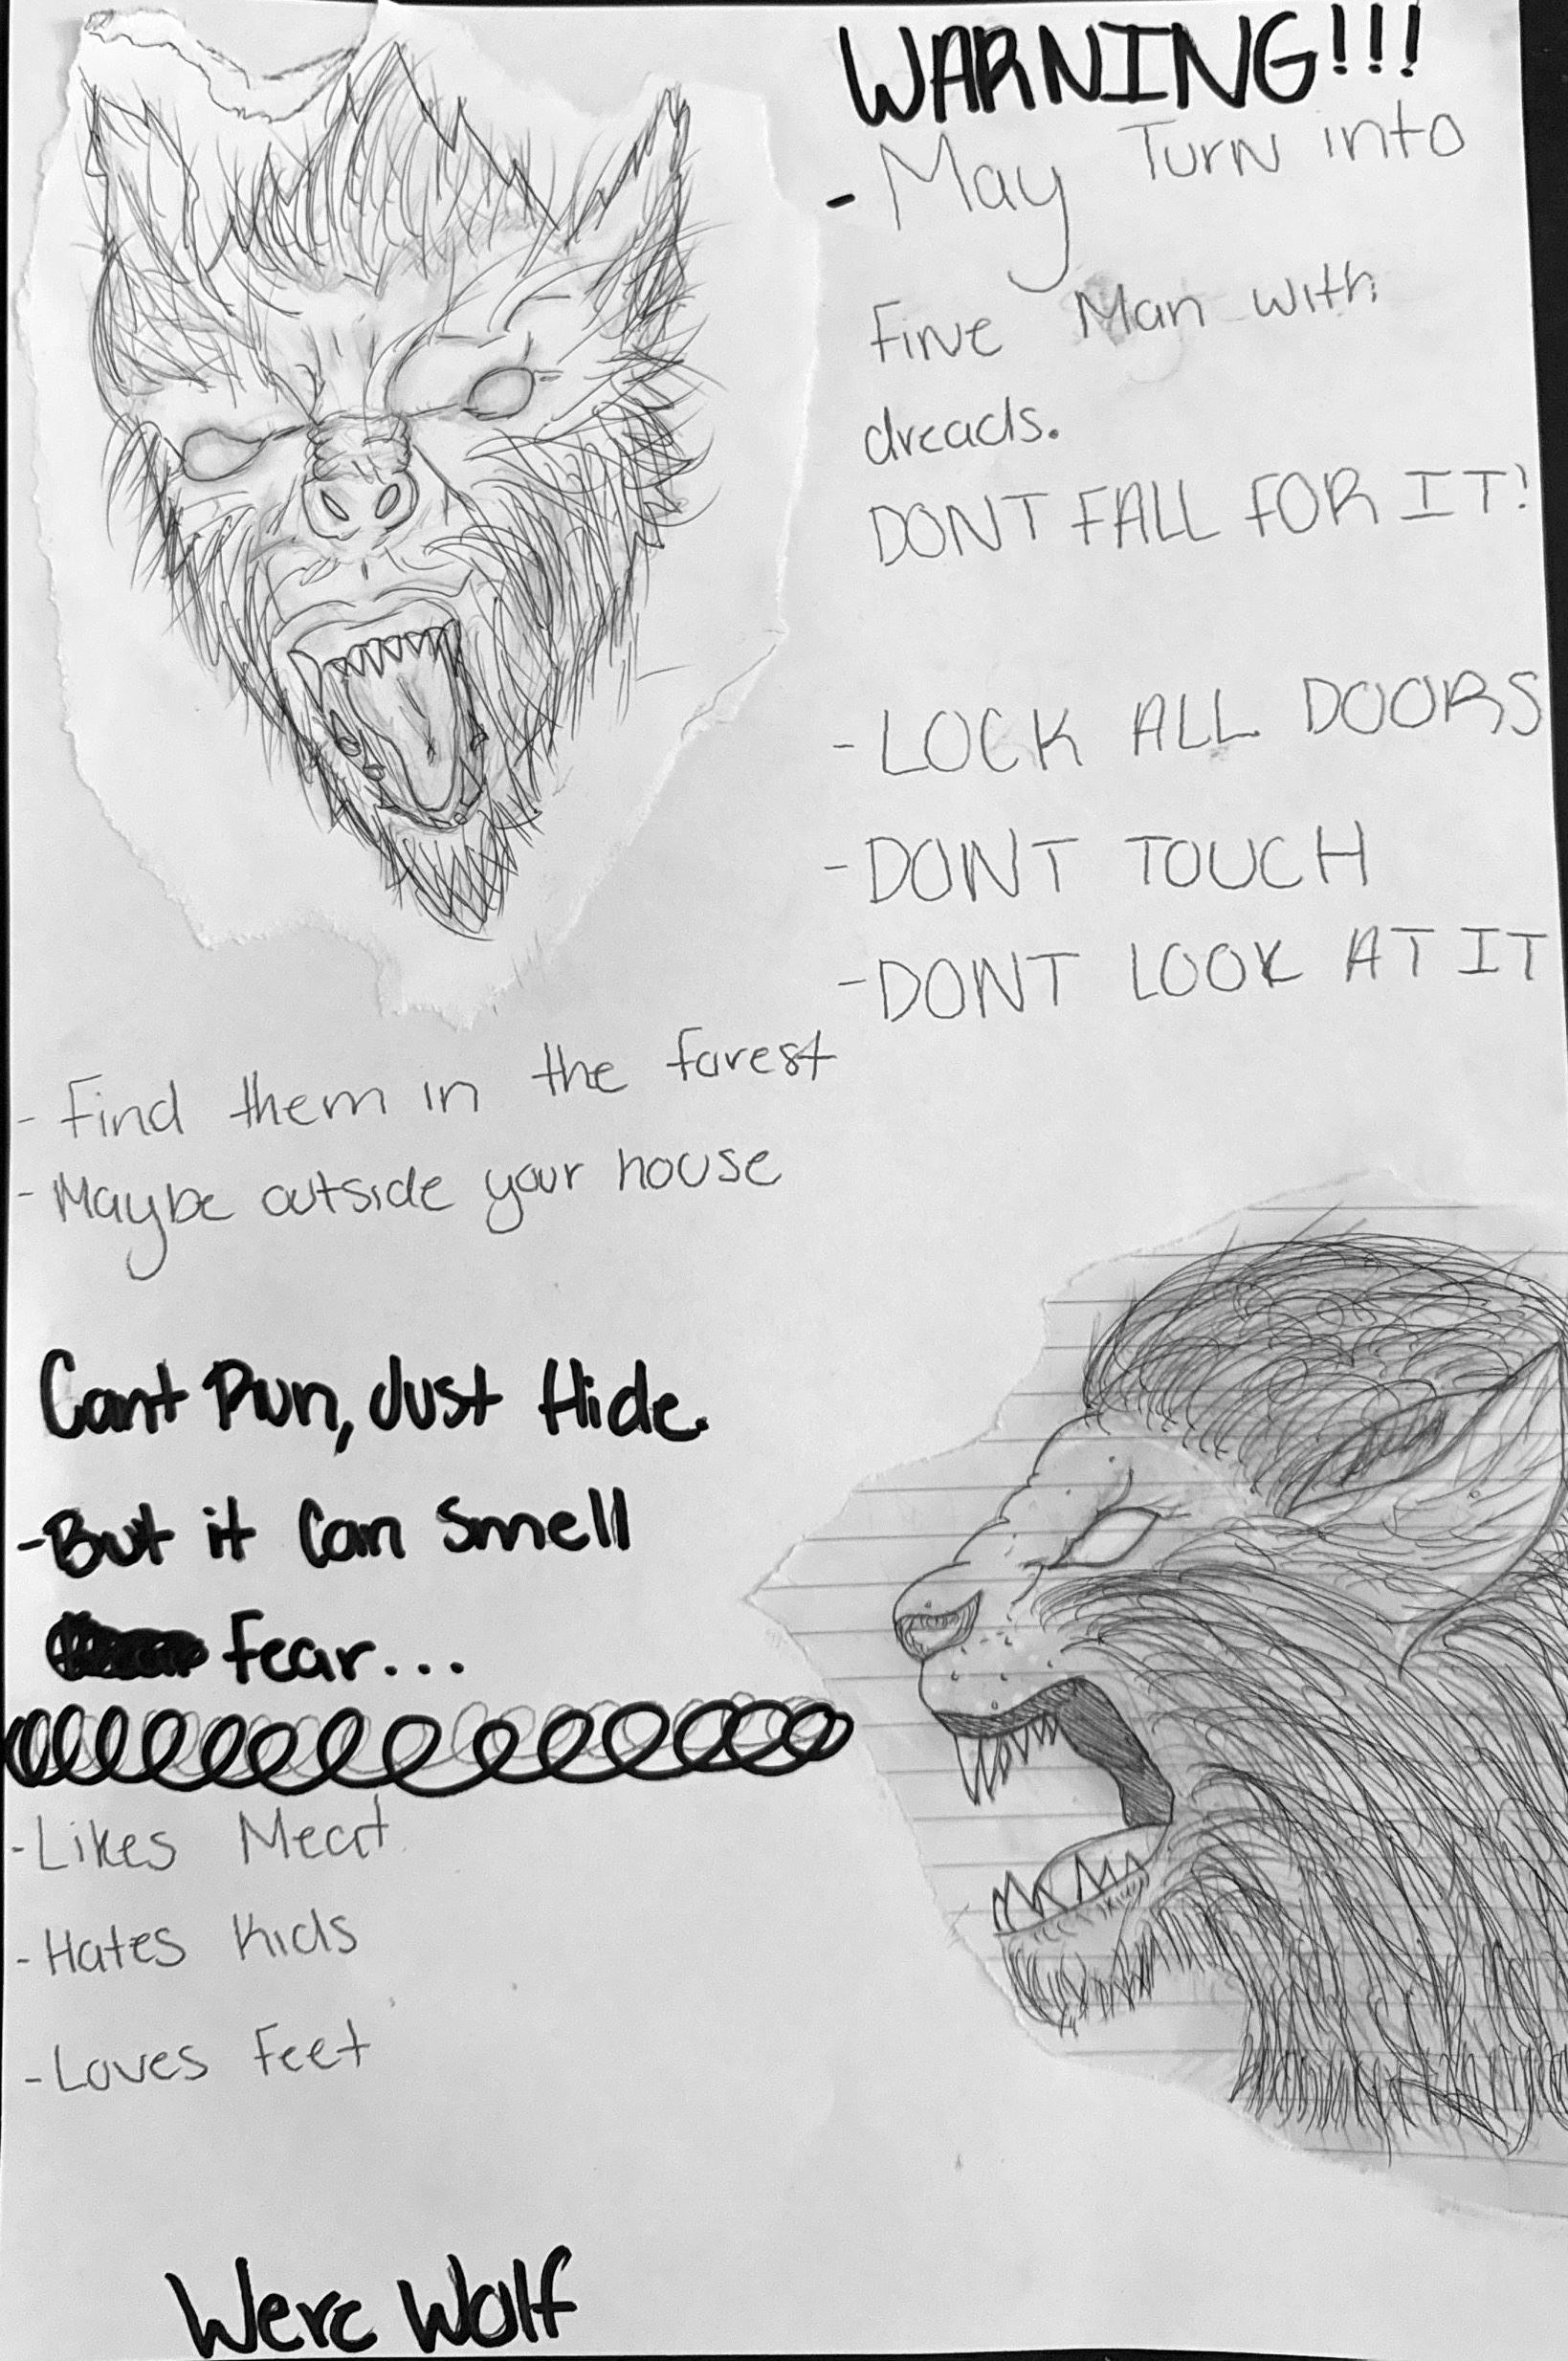 WARNING!!!
- May Turn into
Fine Man with
dreads.
DONT FALL FOR IT!
- LOCK ALL DOORS
- DONT TOUCH
- DONT LOOK AT IT
- Find them in the forest
- Maybe outside your house
Cant Run, Just Hide.
- But it Can Smell
fear...
- Likes Meat
- Hates Kids
- Loves Feet
Were Wolf